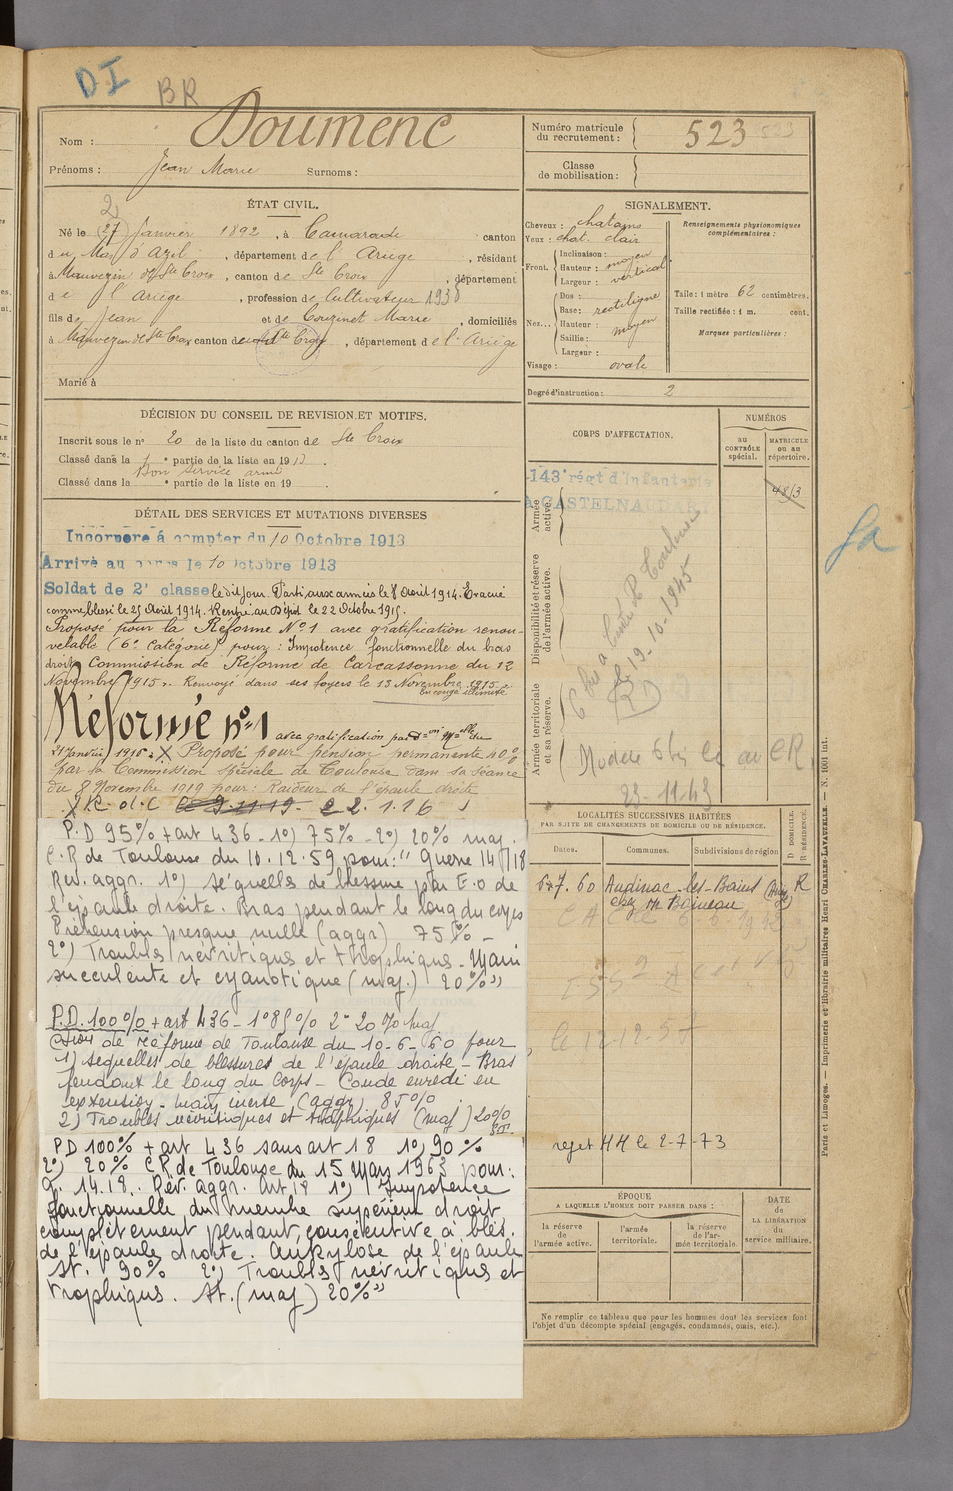 DI
BR
Nom : Doumenc
Prénoms : Jean Marie Surnoms :
Numéro matricule du recrutement : 523 523
Classe de mobilisation :
ÉTAT CIVIL.
2
Né le (27) Janvier 1892, à Camarade canton
du Mas d'Azil, département de l'Ariège, résidant
à Mauvezin de Ste Croix, canton de Ste Croix, département
de l'Ariège, profession de Cultivateur 1938
fils de Jean et de Couzinet Marie, domiciliés
à Mauvezin de Ste Croix canton de Ste Croix, département de l'Ariège
Marié à
SIGNALEMENT.
Cheveux : chatains
Yeux : chat. clair
Front. Inclinaison :
Hauteur : moyen
Largeur : vertical
Nez... Dos :
Base : rectiligne
Hauteur : moyen
Saillie :
Largeur :
Visage : ovale
Renseignements physionomiques complémentaires :
Taille : 1 mètre 62 centimètres.
Taille rectifiée : 1 m. cent.
Marques particulières :
Degré d'instruction : 2
DÉCISION DU CONSEIL DE REVISION ET MOTIFS.
Inscrit sous le n° 20 de la liste du canton de Ste Croix
Classé dans la 1 ° partie de la liste en 191
Bon service armé
Classé dans la ° partie de la liste en 19
DÉTAIL DES SERVICES ET MUTATIONS DIVERSES
Incorporé à compter du 10 Octobre 1913
Arrivé au corps le 10 Octobre 1913
Soldat de 2e classe le dit jour. Parti aux armées le 8 Août 1914. Evacué
comme blessé le 25 Août 1914. Rentré au Dépôt le 22 Octobre 1915.
Proposé pour la Réforme N°1 avec gratification renou-
velable (6e Catégorie) pour : Impotence fonctionnelle du bras
droit, Commission de Réforme de Carcassonne du 12
Novembre 1915. Renvoyé dans ses foyers le 13 Novembre 1915
En congé illimité
Réformé n°1 avec gratification par
21 Janvier 1916. X Proposé pour pension permanente 40%
par la Commission spéciale de Toulouse dans sa séance
du 8 Novembre 1919 pour : Raideur de l'épaule droite
P.D 95% + art 436 - 1°) 75% - 2°) 20% maj.
C.R de Toulouse du 10.12.59 pour : " Guerre 14/18
Rev. aggr. 1°) séquelles de blessure par E.O de
l'épaule droite. Bras pendant le long du corps
Préhension presque nulle (aggr) 75% -
2°) Troubles névritiques et trophiques - Main
succulente et cyanotique (maj.) 20% "
P.D. 100% + art 436 - 1° 85% 2° 20% maj
Cion de réforme de Toulouse du 10-6-60 pour
1) sequelles de blessures de l'épaule droite - Bras
pendant le long du corps - Coude enredi en
extension - main inerte (aggr) 85%
2) Troubles névritiques et trophiques (maj) 20%
ST.
PD 100% + art 436 sans art 18 1°) 90%
2°) 20% C.R. de Toulouse du 15 Mars 1963 pour :
G. 14.18. Rev. aggr. Art 18 1°) Impotence
fonctionnelle du membre supérieur droit
complètement pendant, consécutive à bles.
de l'épaule droite. Ankylose de l'épaule
St. 90% 2°) Troubles névritiques et
trophiques. St. (maj) 20% "
CORPS D'AFFECTATION.
NUMÉROS
au CONTRÔLE spécial.
MATRICULE ou au répertoire.
143e régt d'Infanterie
à CASTELNAUDARY
4813
Armée active.
Disponibilité et réserve de l'armée active.
Armée territoriale et sa réserve.
6 bis a Centre R Toulouse
le 19-10-1945
RD
Modele 6 bis le au CR
23-11-43
LOCALITÉS SUCCESSIVES HABITÉES
PAR SUITE DE CHANGEMENTS DE DOMICILE OU DE RÉSIDENCE.
Dates.
Communes.
Subdivisions de région
D. DOMICILE.
R. RÉSIDENCE.
6.7.60 Audinac-les-Bains R
chez Mr Baineau
le 12-12-57
rejet HH le 2-7-73
ÉPOQUE
A LAQUELLE L'HOMME DOIT PASSER DANS :
la réserve de l'armée active.
l'armée territoriale.
la réserve de l'armée territoriale.
DATE DE LA LIBÉRATION du service militaire.
Ne remplir ce tableau que pour les hommes dont les services font
l'objet d'un décompte spécial (engagés, condamnés, omis, etc.).
Paris et Limoges. — Imprimerie et librairie militaires Henri CHARLES-LAVAUZELLE. — N. 1001 int.